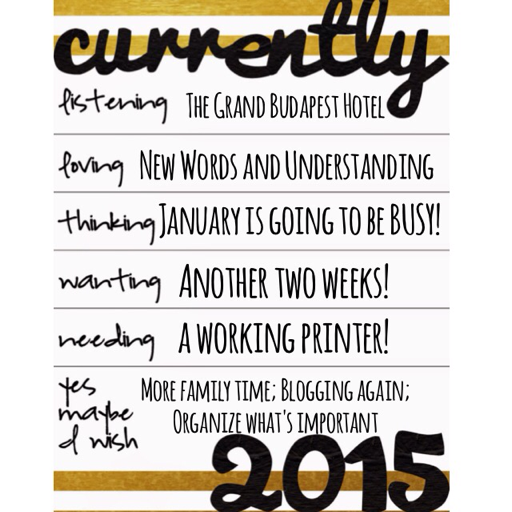 currently
listening THE GRAND BUDAPEST HOTEL
loving NEW WORDS AND UNDERSTANDING
thinking JANUARY IS GOING TO BE BUSY!
wanting ANOTHER TWO WEEKS!
needing A WORKING PRINTER!
yes MORE FAMILY TIME; BLOGGING AGAIN;
maybe ORGANIZE WHAT'S IMPORTANT
I wish
2015